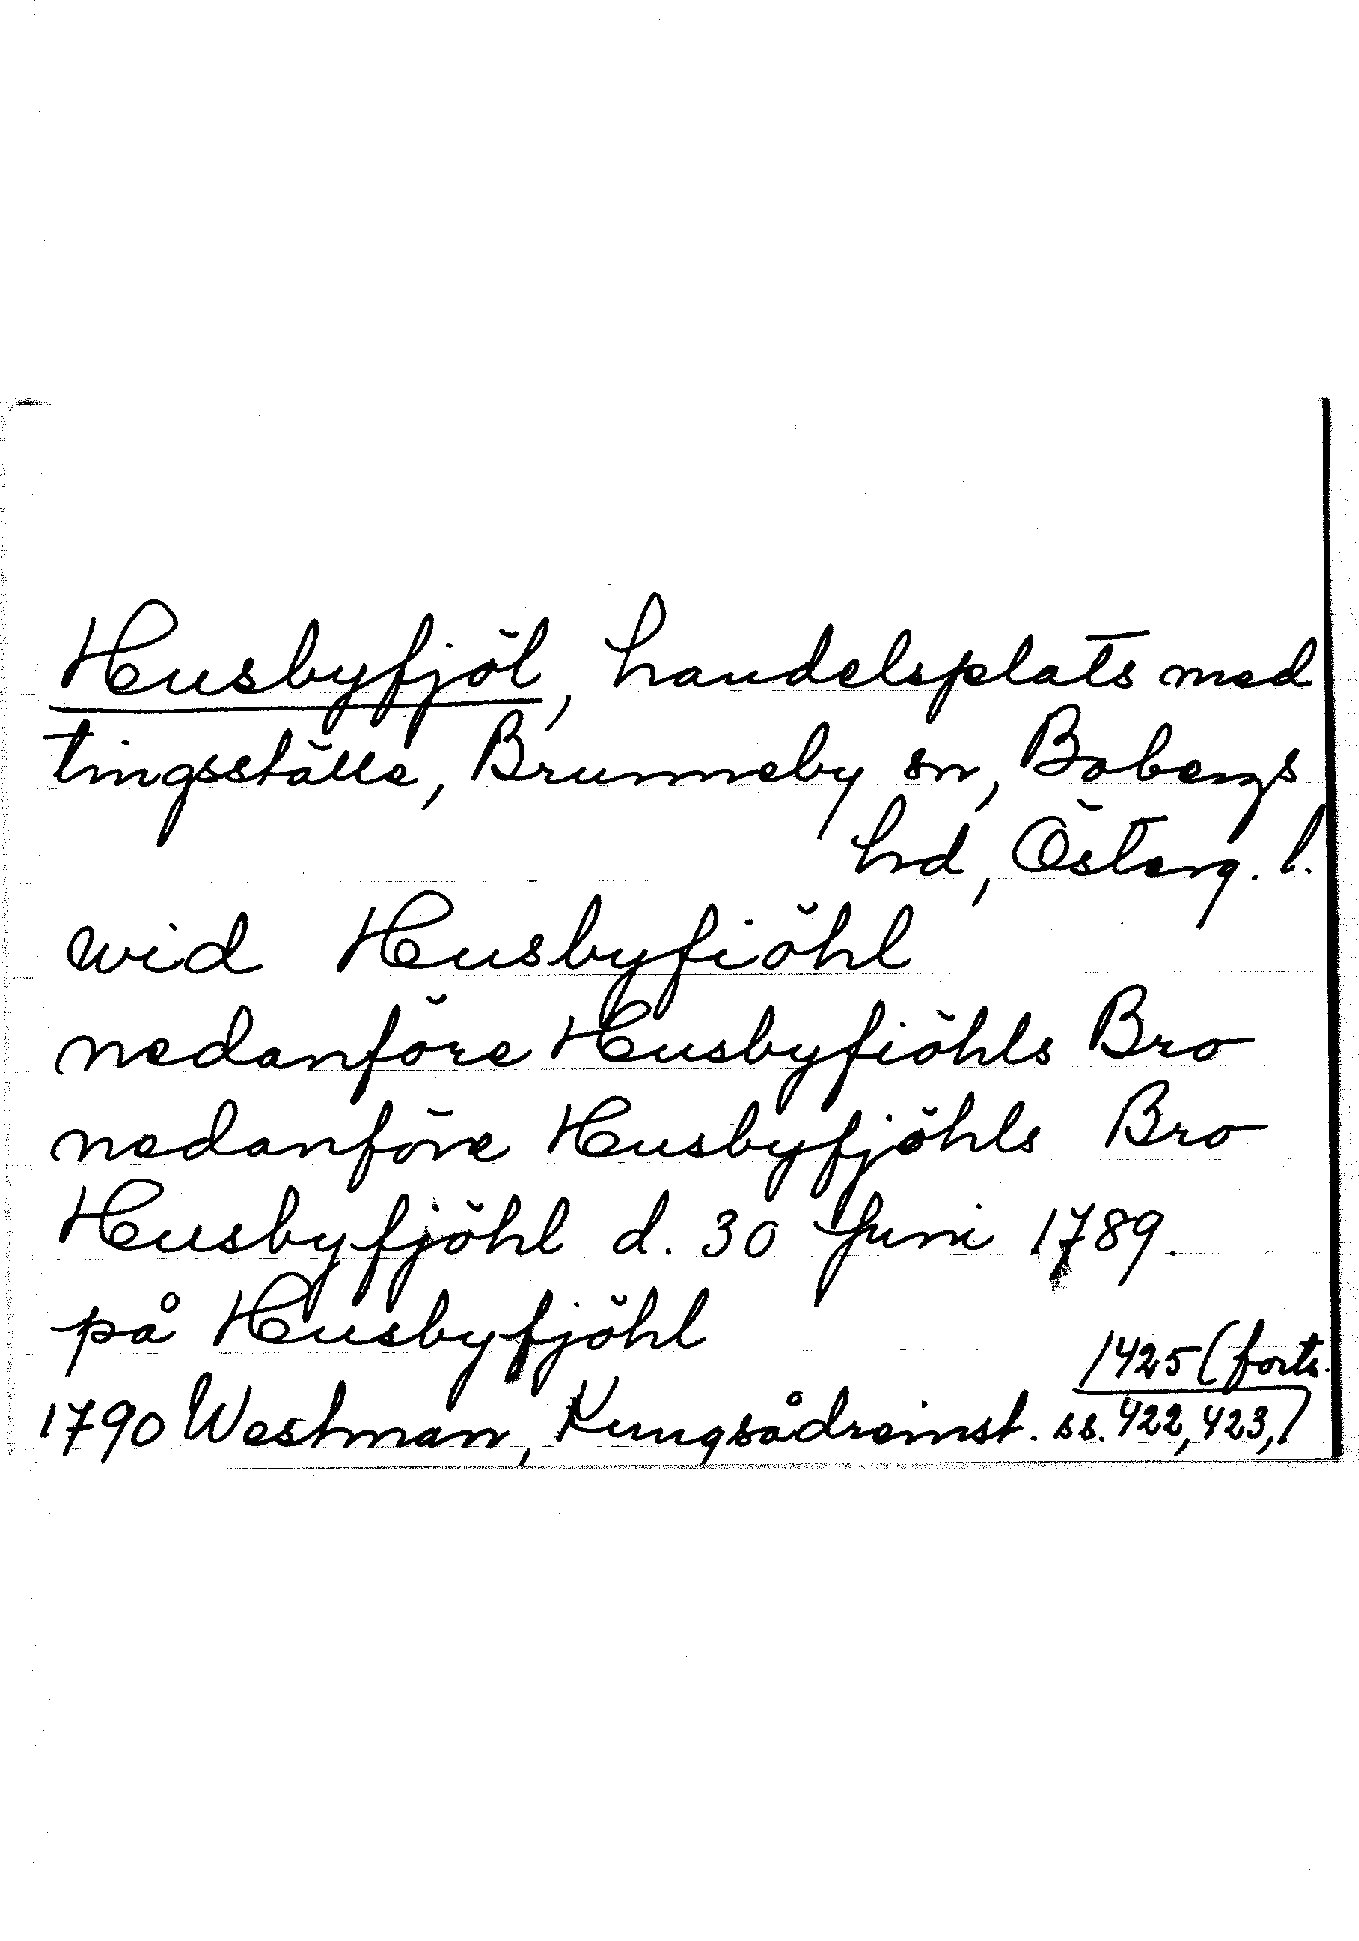 Husbyfjöl, handelsplats med
tingsställe, Brunneby sn, Bobergs
hrd, Österg. l.
wid Husbyfiöhl
nedanföre Husbyfiöhls Bro
nedanföre Husbyfjöhls Bro
Husbyfjöhl d. 30 Juni 1789.
på Husbyfjöhl
1425 (forts.
1790 Westman, Kungsådreinst. ss. 422, 423,